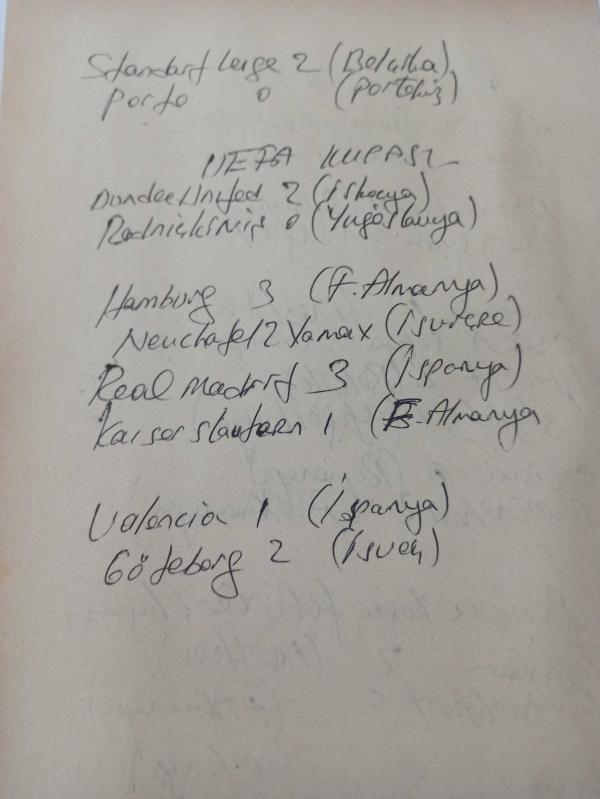 Standart Liege 2 (Belçika)
Porto 0 (Portekiz)
UEFA KUPASI
Dundee United 2 (İskoçya)
Radnički Niş 0 (Yugoslavya)
Hamburg 3 (F. Almanya)
Neuchatel 2 Xamax (İsviçre)
Real Madrit 3 (İspanya)
Kaiserslautern 1 (F. Almanya
Valencia 1 (İspanya)
Göteborg 2 (İsveç)